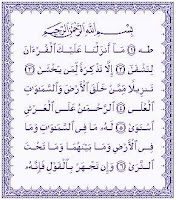 بِسْمِ اللَّهِ الرَّحْمَٰنِ الرَّحِيمِ
طه ۝١ مَا أَنزَلْنَا عَلَيْكَ الْقُرْءَانَ
لِتَشْقَىٰ ۝٢ إِلَّا تَذْكِرَةً لِّمَن يَخْشَىٰ ۝٣
تَنزِيلًا مِّمَّنْ خَلَقَ الْأَرْضَ وَالسَّمَٰوَٰتِ
الْعُلَى ۝٤ الرَّحْمَٰنُ عَلَى الْعَرْشِ
اسْتَوَىٰ ۝٥ لَهُ مَا فِي السَّمَٰوَٰتِ وَمَا
فِي الْأَرْضِ وَمَا بَيْنَهُمَا وَمَا تَحْتَ
الثَّرَىٰ ۝٦ وَإِن تَجْهَرْ بِالْقَوْلِ فَإِنَّهُ